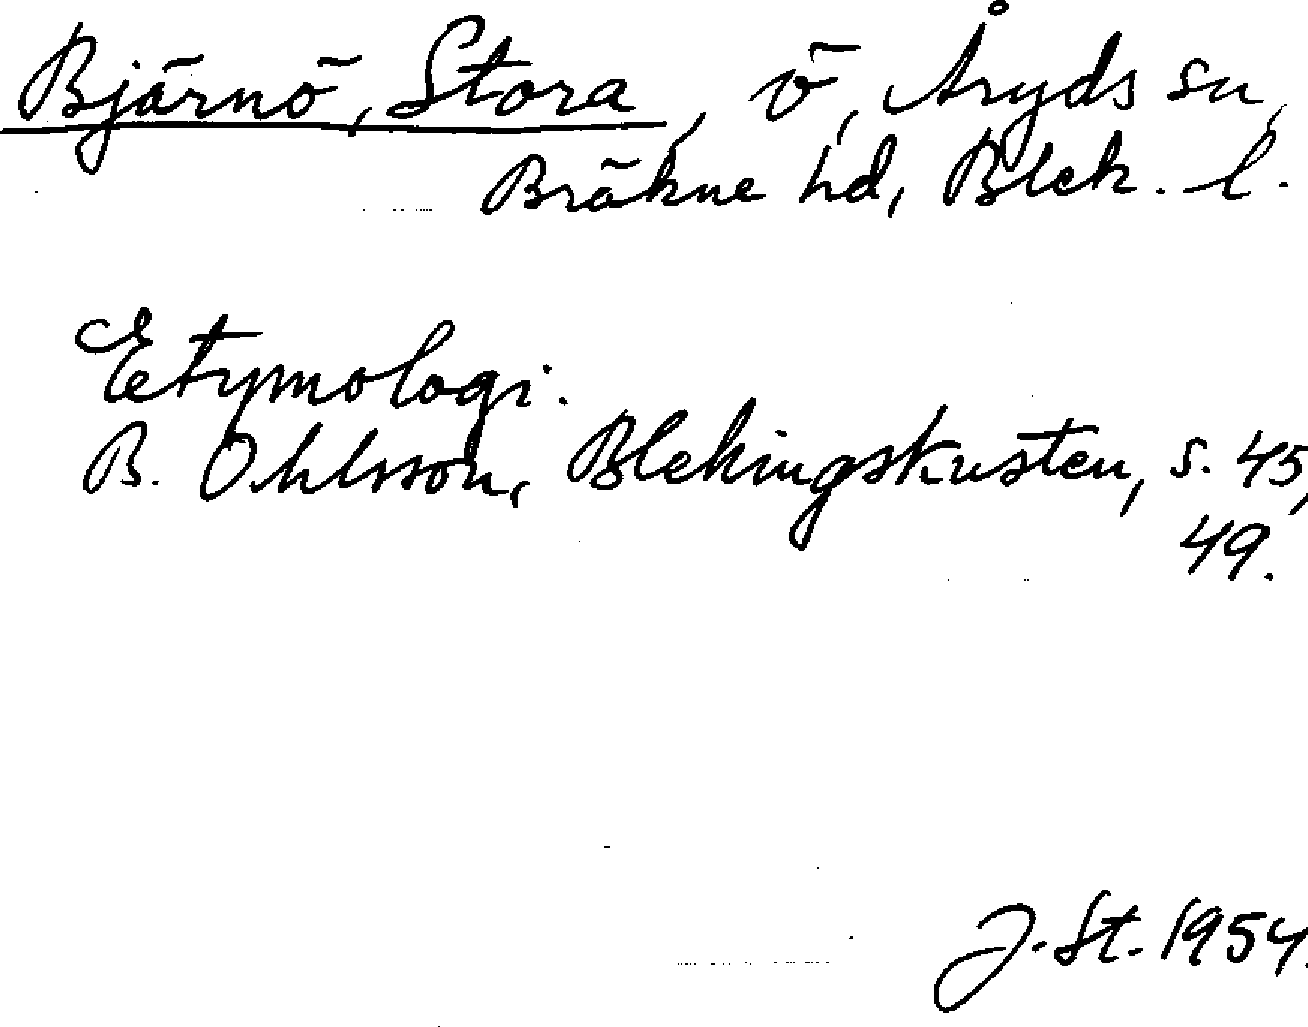 Björnö, Stora, ö, Åryds sn,
Bräkne hd, Blek. l.
Etymologi.
B. Ohlsson, Blekingskusten, s. 45,
49.
J. St. 1954.